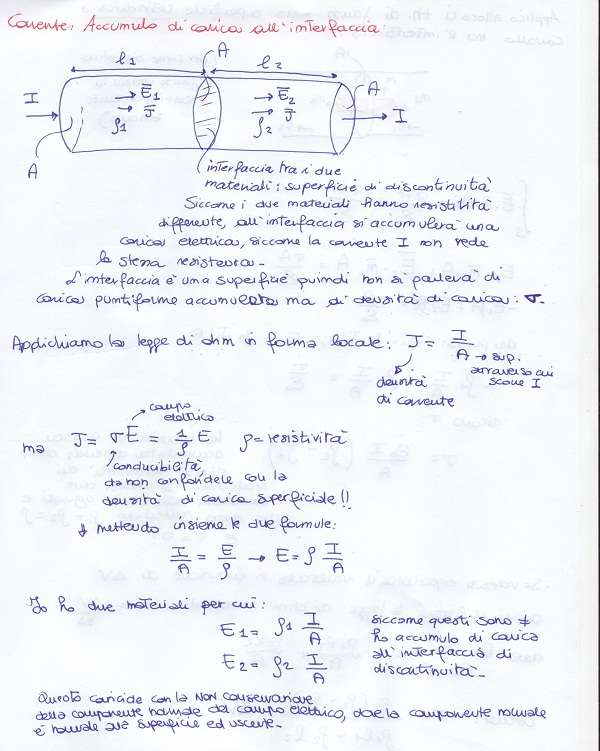 Corrente: Accumulo di carica all'interfaccia
l1 A l2
I E̅1 J̅ ρ1 E̅2 J̅ ρ2 A I
A
interfaccia tra i due
materiali: superficie di discontinuità
Siccome i due materiali hanno resistività
differente, all'interfaccia si accumulerà una
carica elettrica, siccome la corrente I non vede
la stessa resistenza.
L'interfaccia è una superficie quindi non si parlerà di
carica puntiforme accumulata ma di densità di carica: σ.
Applichiamo la legge di ohm in forma locale: J = I/A → sup. attraverso cui scorre I
densità
di corrente
campo
elettrico
ma J = σE = 1/ρ E ρ = resistività
conducibilità
da non confondere con la
densità di carica superficiale!!
↓ mettendo insieme le due formule:
I/A = E/ρ → E = ρ I/A
Io ho due materiali per cui:
E1 = ρ1 I/A
E2 = ρ2 I/A
siccome questi sono ≠
ho accumulo di carica
all'interfaccia di
discontinuità.
Questo coincide con la NON conservazione
della componente normale del campo elettrico, dove la componente normale
è normale alla superficie ed uscente.